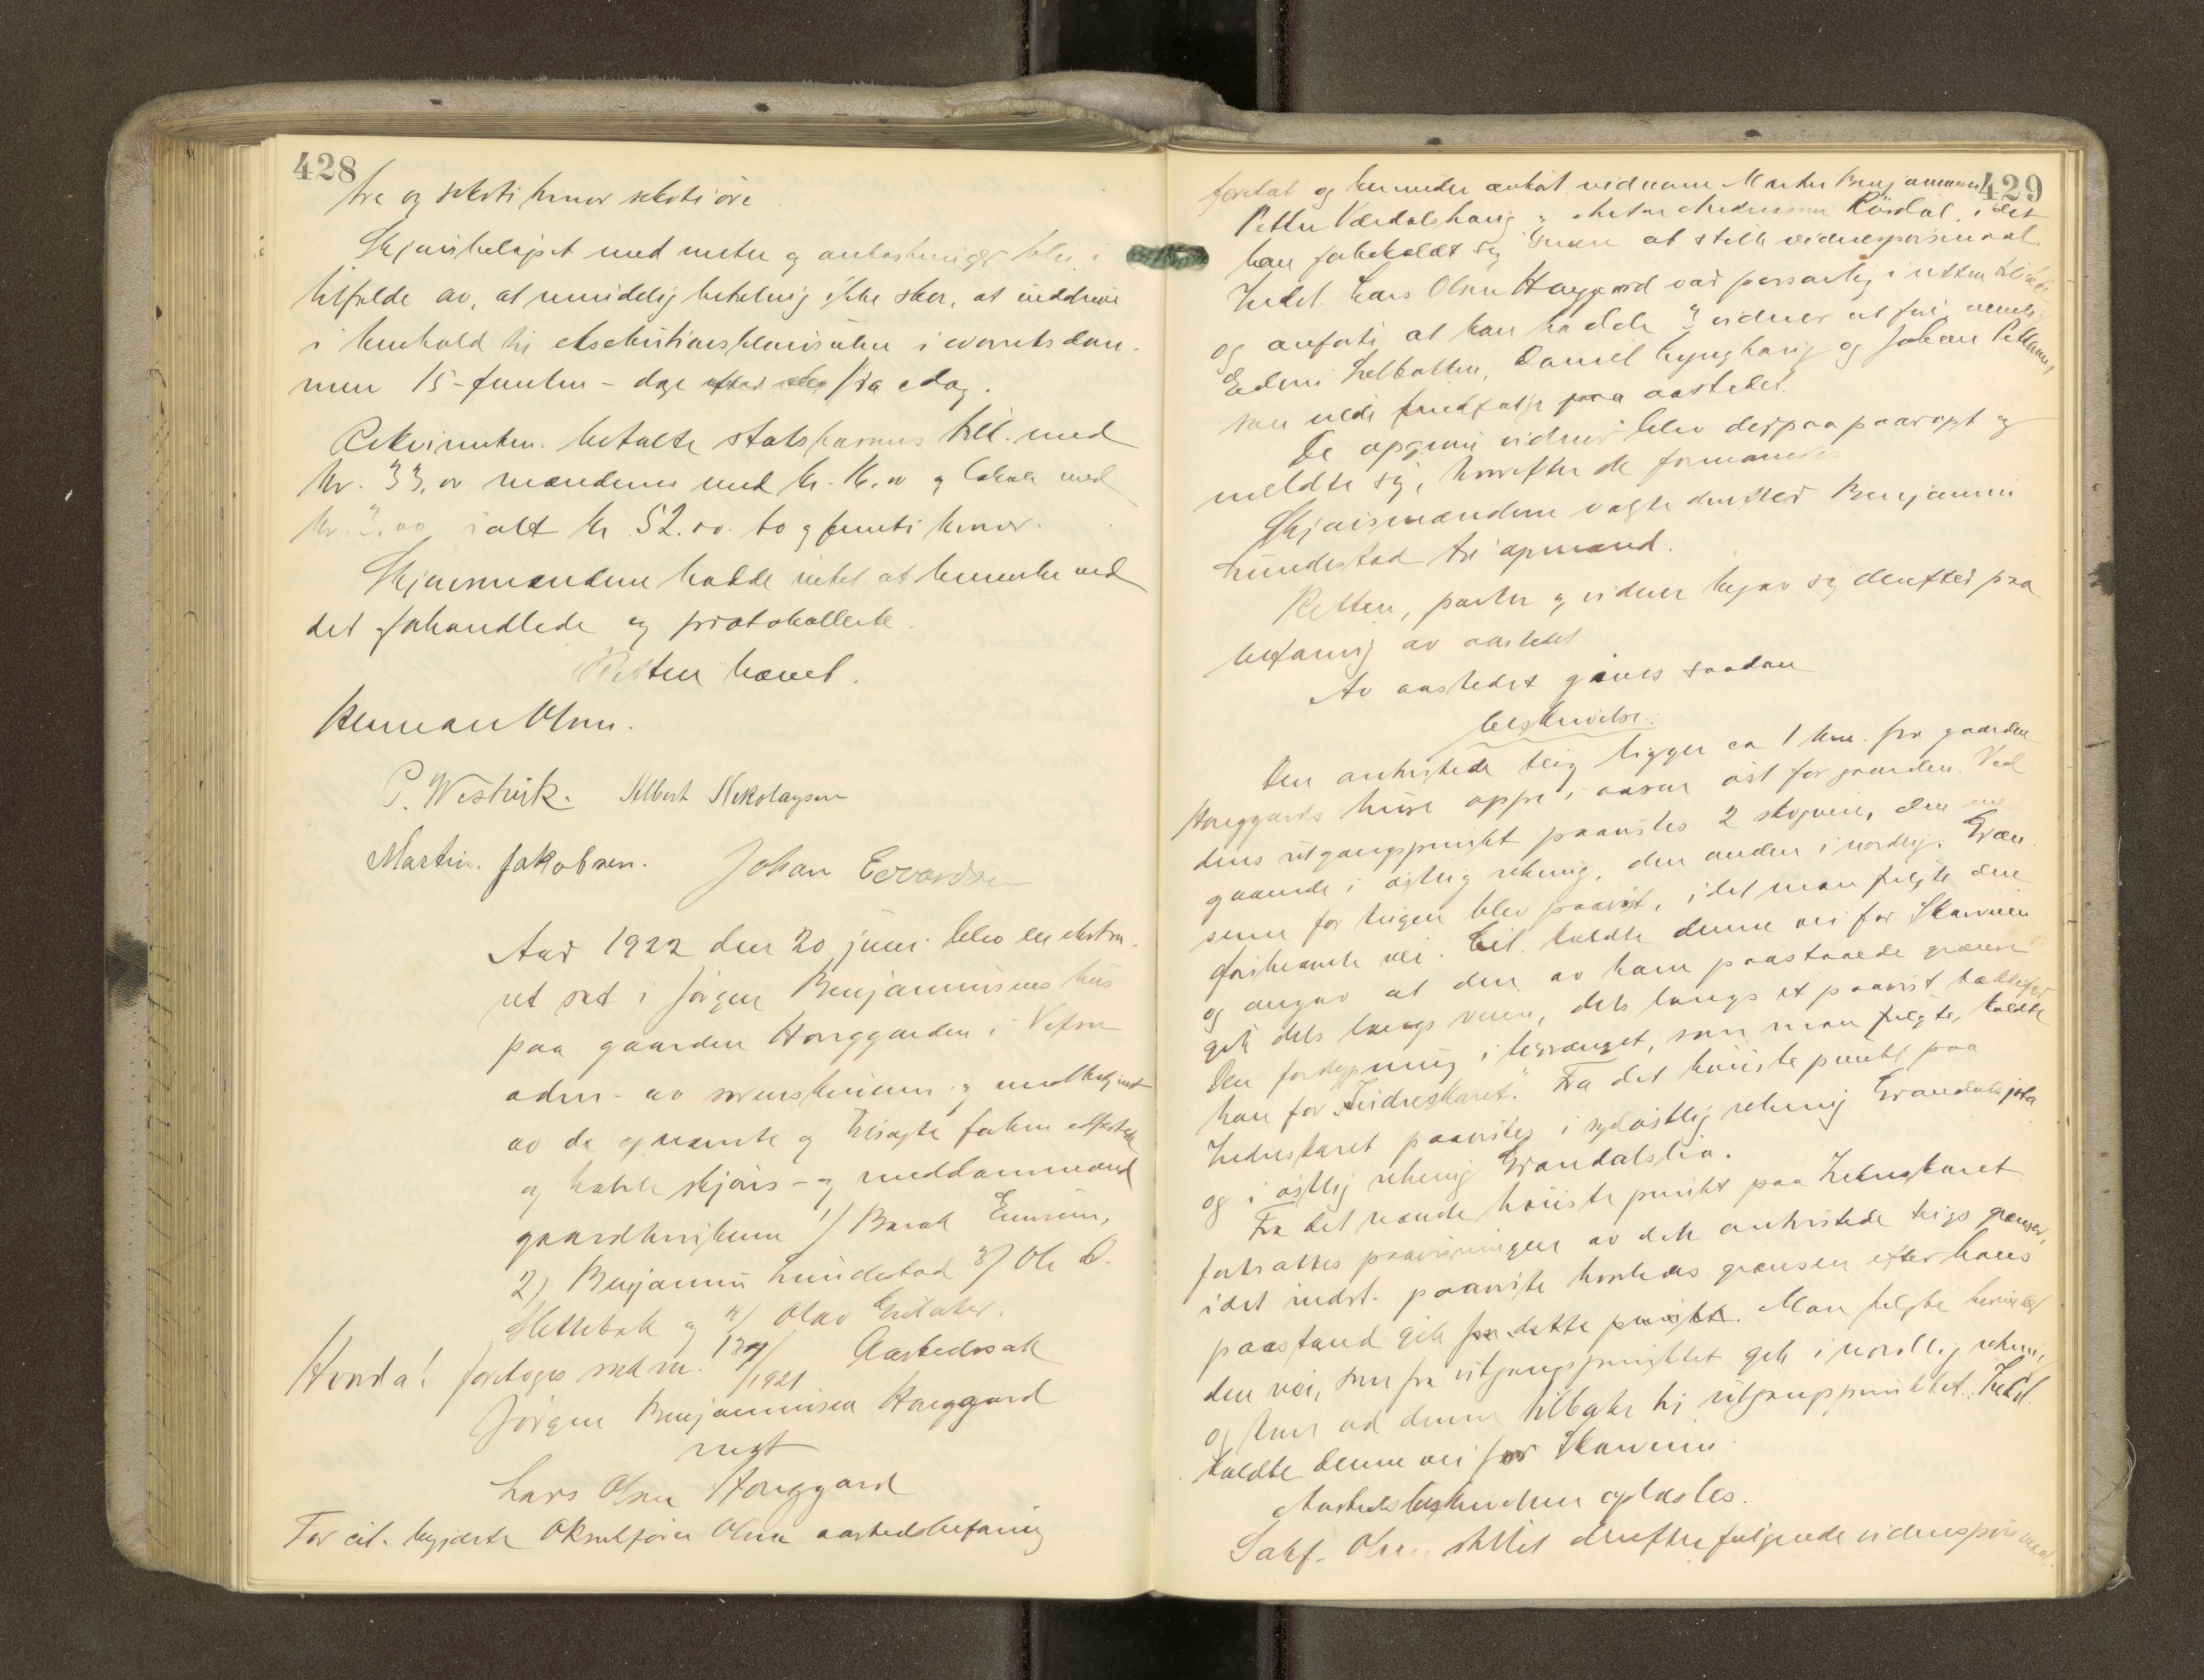 428
tre og seksti kroner seksti øre
Skjønsbeløpet med renter og omkostninger blir i
tilfælde av, at mindelig betaling ikke sker, at inddrive
i henhold til eksekutionsklausulen i worretsdom-
men 15 - femten - dage fra idag.
Rekvirenten betalte statskassens till. med
kr. 33,00 mændenes med kr. 16.00 og lokale med
kr. 3.00 ialt kr 52.00 to og femti kroner.
Skjønsmændene hadde intet at bemerke ved
det forhandlede og protokollerte.
Retten hævet.
Herman Olsen.
P. Westvik. Albert Nikolaysen
Martin Jakobsen. Johan Edvardsen
Aar 1922 den 20 juni blev en ekstra-
ret sat i Jørgen Benjaminsens hus
paa gaarden Honggarden i Vefsn
adm. av sorenskriveren og medbetjent
av de opnævnte og tilsagte forhen edfæstede
og habile skjøns- og meddomsmænd
gaardbrukerne 1/ Barok
2) Benjamin Lundestad 3/ Ole O.
og 4/ Olav
Hvorda! foretoges sak nr. 129/1921 Aastedssak
Jørgen Benjaminsen Honggard
mot
Lars Olsen Honggard
For cit. begjærte O.R.sakfører Olsen aastedsbefaring
429
foretat og herunder avhørt vidnerne Martin Benjaminsen
Petter Vardalshaug og Andreassen Røsdal, idet
han forbeholdt sig senere at stille vidnespørsmaal.
Indst. Lars Olsen Honggard var personlig i retten tilstede
og anførte at han hadde 3 vidner at føre, nemlig
Daniel Lynghaug og Johan Pettersen,
som vilde fremsættes paa aastedet.
De opgivne vidner blev derpaa paaropt og
meldte sig, hvorefter de formanedes
Skjønsmændene valgte derefter Benjamin
Lundestad til opmand.
Retten, parter og vidner begav sig derefter paa
befaring av aastedet
Av aastedet gives saadan
beskrivelse:
Den omtvistede teig ligger ca 1 km. fra gaarden
Honggards huse oppe i aasen øst for gaarden. Ved
dens utgangspunkt paavistes 2 skogveie, den ene
gaaende i østlig retning, den anden i nordlig. Græn-
sene for teigen blev paavist, idet man fulgte den
førstnævnte vei. Cit. kaldte denne vei for Skarveien
og angav at den av ham paastaaede grænse
gik dels langs veien, dels langs et paavist bækkefar
Den fordypning i terrænget, som man fulgte, kaldte
han for "Indreskaret." Fra det høieste punkt paa
Indreskaret paavistes i sydøstlig retning Grandalsjorda
og i østlig retning Grandalslia.
Fra det nævnte høieste punkt paa Indreskaret
fortsattes paavisningen av dette omtvistede teigs grænser,
idet indst. paaviste hvorledes grænsen efter hans
paastand gik fra dette punkt. Man fulgte herunder
den vei, som fra utgangspunktet gik i nordlig retning
og kom ad denne tilbake til utgangspunktet. Indst.
kaldte denne vei for Skarveien.
Aastedsbeskrivelsen oplæstes.
Sakf. Olsen stillet derefter følgende vidnespørsmaal.